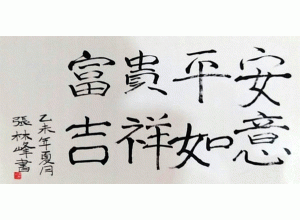 富貴平安
吉祥如意
乙未年夏月
張林峰書